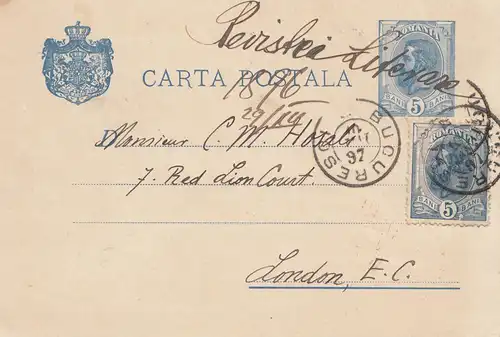 ROMANIA
Revista Literara
CARTA POSTALA
5 BANI 5 BANI
18/96
Monsieur C. M. 
7. Red Lion Court.
London, E. C.
BUCURESCI
97
ROMANIA
BANI 5 BANI